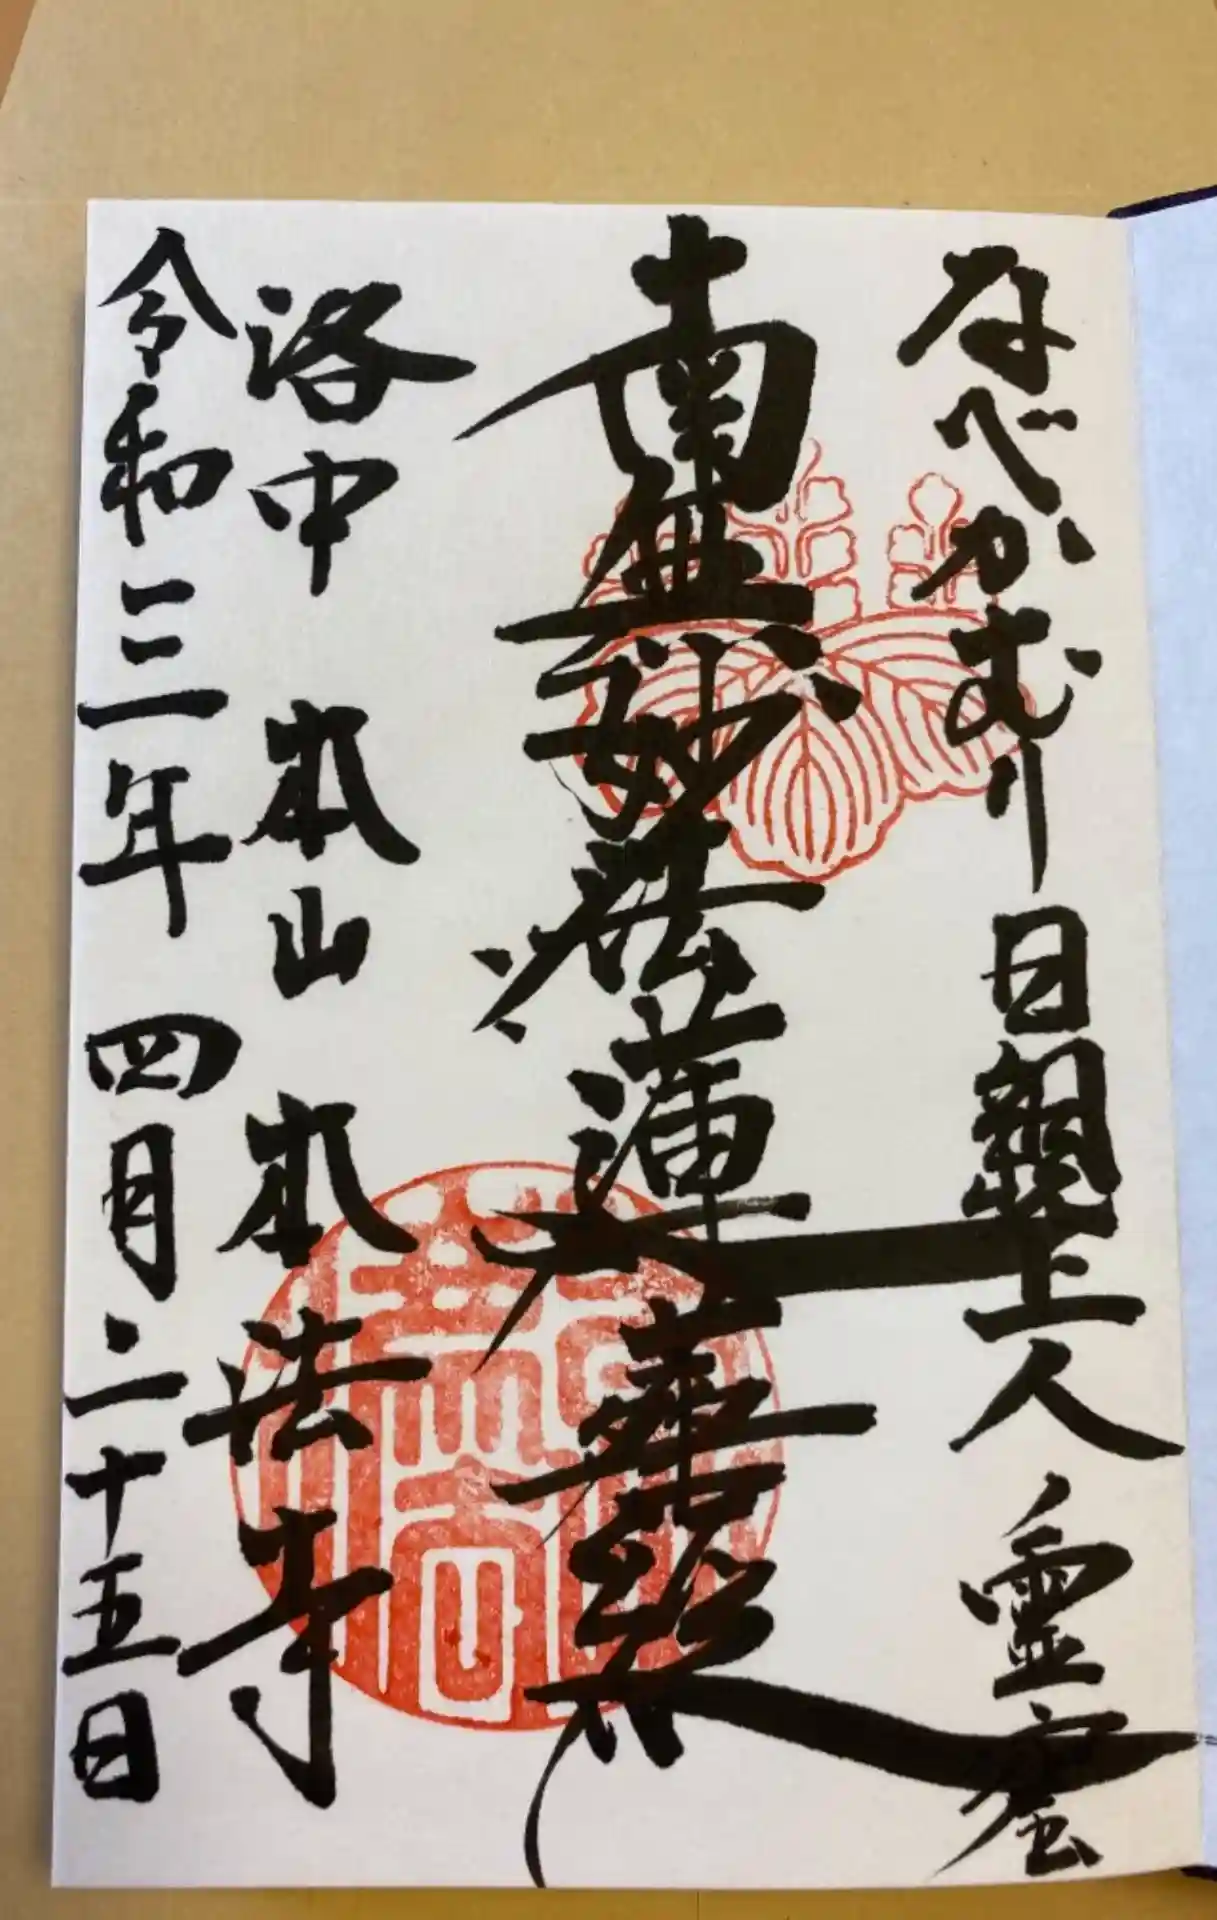 なべかむり日親上人 霊窟
南無妙法蓮華経
洛中 本山 本法寺
令和三年 四月二十五日